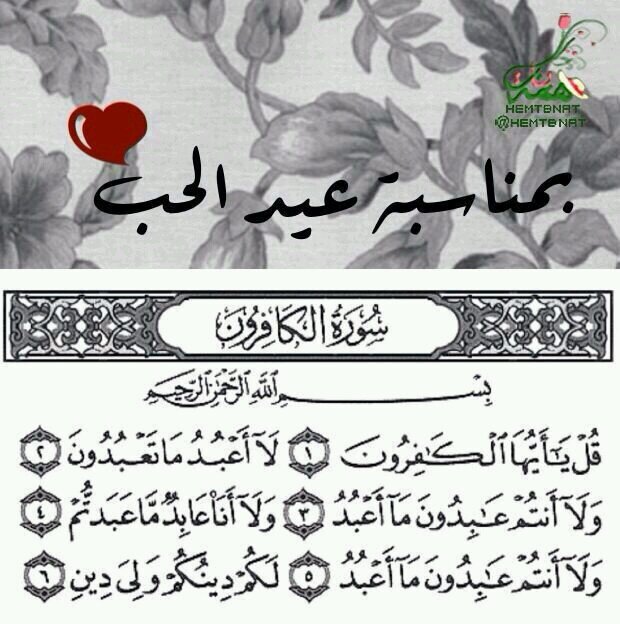 همتنا
HEMTBNAT
@HEMTBNAT
بمناسبة عيد الحب
سُورَةُ الكَافِرُونَ
بِسْمِ اللَّهِ الرَّحْمَٰنِ الرَّحِيمِ
قُلْ يَٰٓأَيُّهَا ٱلْكَٰفِرُونَ ١ لَآ أَعْبُدُ مَا تَعْبُدُونَ ٢
وَلَآ أَنتُمْ عَٰبِدُونَ مَآ أَعْبُدُ ٣ وَلَآ أَنَا۠ عَابِدٌ مَّا عَبَدتُّمْ ٤
وَلَآ أَنتُمْ عَٰبِدُونَ مَآ أَعْبُدُ ٥ لَكُمْ دِينُكُمْ وَلِىَ دِينِ ٦